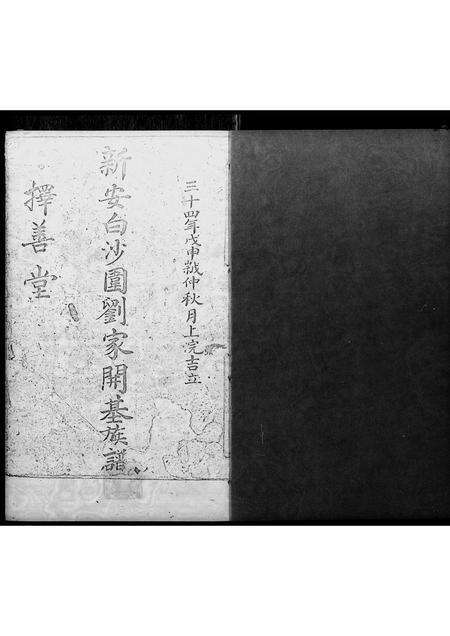 三十四年戊申歲仲秋月上完吉立
新安白沙圍劉家開基族譜
擇善堂